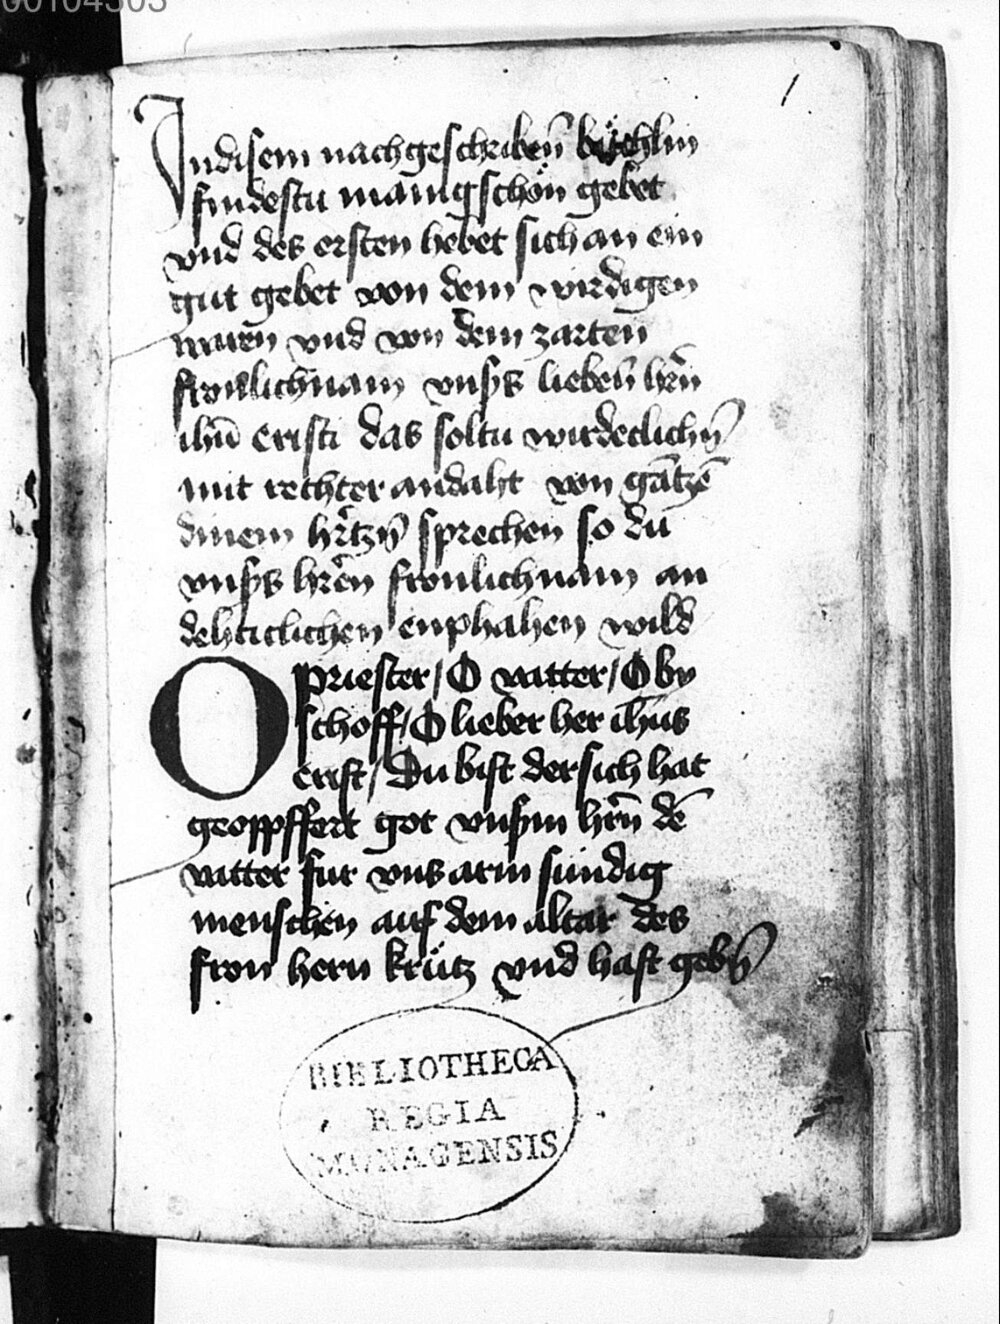 00104503
1
Indisem nachgeschribeñ büchlin
findestu mánig schön gebet
vnd des ersten hebet sich an ein
gut gebet von dem wirdigen
vnd von dem zarten
fronlichnam vnsers liebeñ hr̃n
ihũ cristi das soltu wirdeclichñ
mit rechter andaht von gãtzẽ
dinem hertzñ sprechen so du
vnsers hrẽn fronlichnam an
dehticlichen enphahen wild
O priester / O vatter / O by
schoff / O lieber her ihũs
crist / Du bist der sich hat
geoppffert got vnserm hr̃n dẽ
vatter fur vns arm sundig
menschen auf dem altar des
fron hern krütz vnd hast gebñ
BIBLIOTHECA
REGIA
MONACENSIS